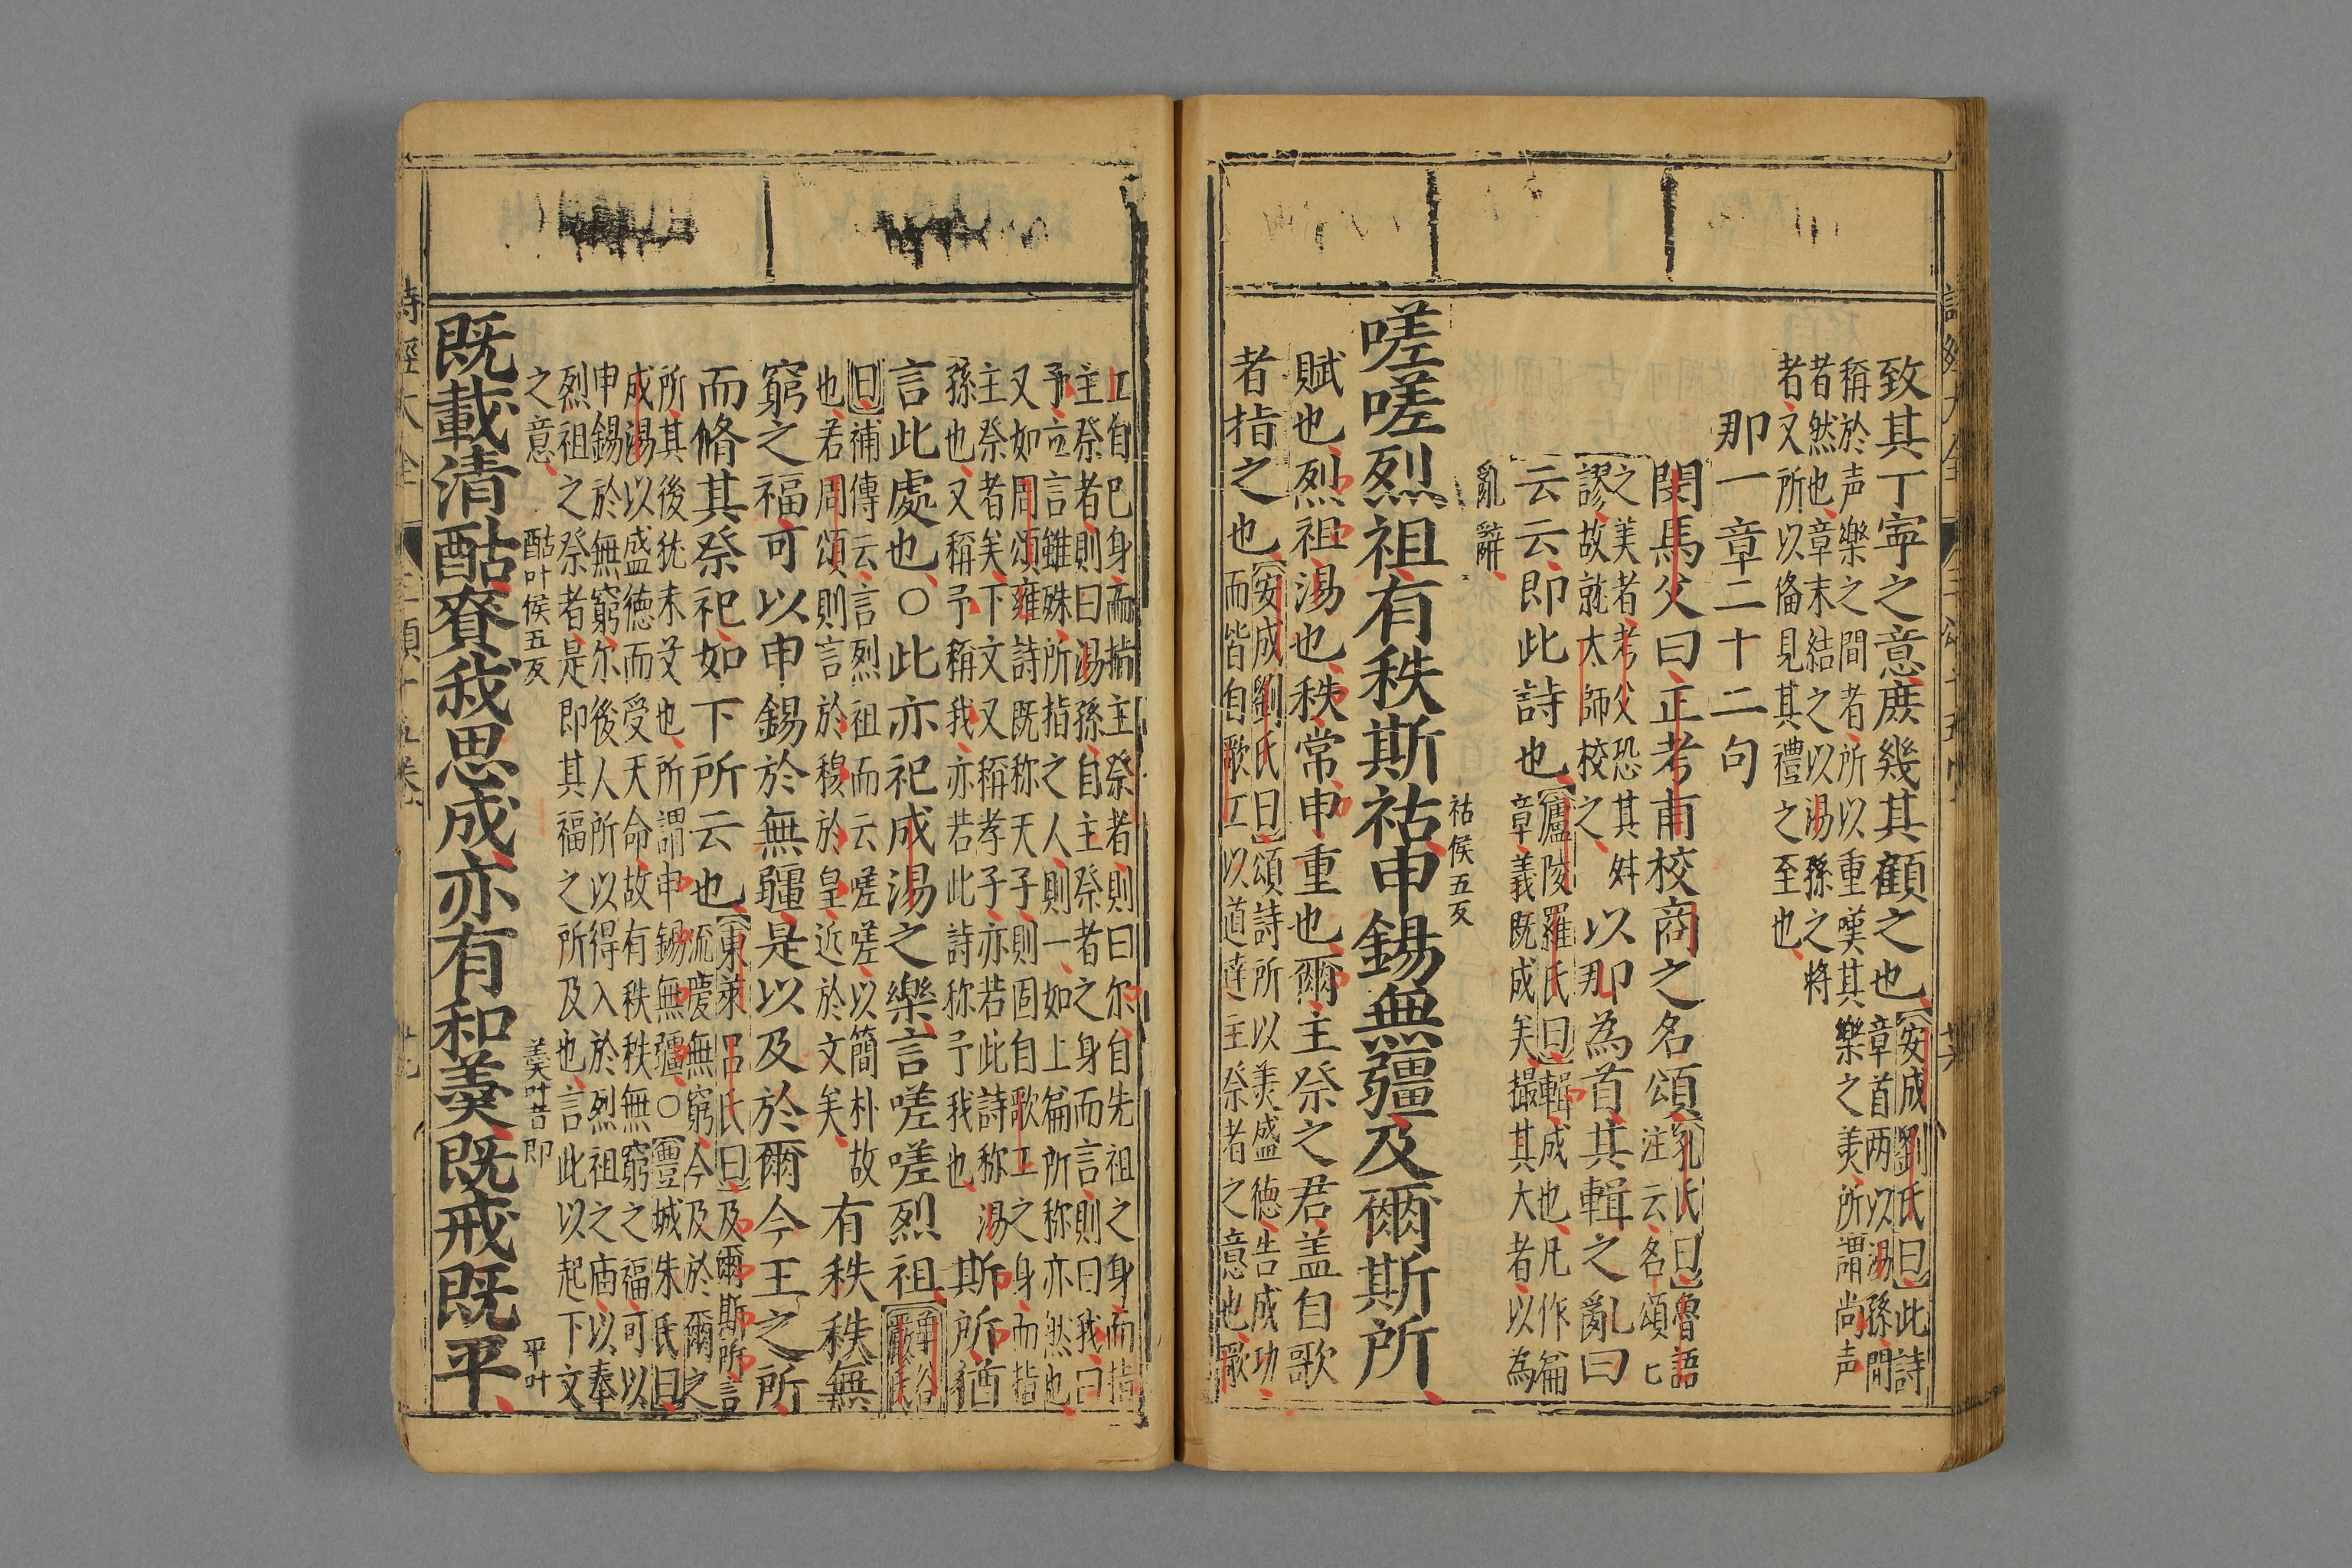 致其丁寧之意庶幾其顧之也
安成劉氏曰此詩
章首兩以湯孫間
稱於声樂之間者所以重嘆其樂之美所謂尚声
者然也章末結之以湯孫之將
者又所以俻見其禮之至也
那一章二十二句
閔馬父曰正考甫校商之名頌
孔氏曰魯語
注云名頌
之美者考父恐其舛
謬故就太師校之
以那為首其輯之亂曰
云云即此詩也
廬陵羅氏曰輯成也凡作篇
章義既成矣撮其大者以為
亂辭
嗟嗟烈祖有秩斯祜申錫無疆及爾斯所
祜侯五反
賦也烈祖湯也秩常申重也爾主祭之君盖自歌
者指之也
安成劉氏曰頌詩所以美盛德告成功
而皆自歌工以道達主祭者之意也歌
工自巳身而指主祭者則曰尔自先祖之身而指
主祭者則曰湯孫自主祭者之身而言則曰我曰
予立言雖殊所指之人則一如上篇所称亦然也
又如周頌雍詩既称天子則固自歌工之身而指
主祭者矣下文又稱孝子亦若此詩称湯
孫也又稱予稱我亦若此詩称予我也
斯所猶
言此處也○此亦祀成湯之樂言嗟嗟烈祖
華谷
嚴氏
曰補傳云言烈祖而云嗟嗟以簡朴故
也若周頌則言於穆於皇近於文矣
有秩秩無
窮之福可以申錫於無疆是以及於爾今王之所
而脩其祭祀如下所云也
東萊呂氏曰及爾斯所言
流慶無窮今及於爾之
所其後猶未艾也所謂申錫無疆○豐城朱氏曰
成湯以盛德而受天命故有秩秩無窮之福可以
申錫於無窮尔後人所以得入於烈祖之庙以奉
烈祖之祭者是即其福之所及也言此以起下文
之意
既載清酤賚我思成亦有和羹既戒既平
酤叶侯五反
羹叶昔郎
平叶